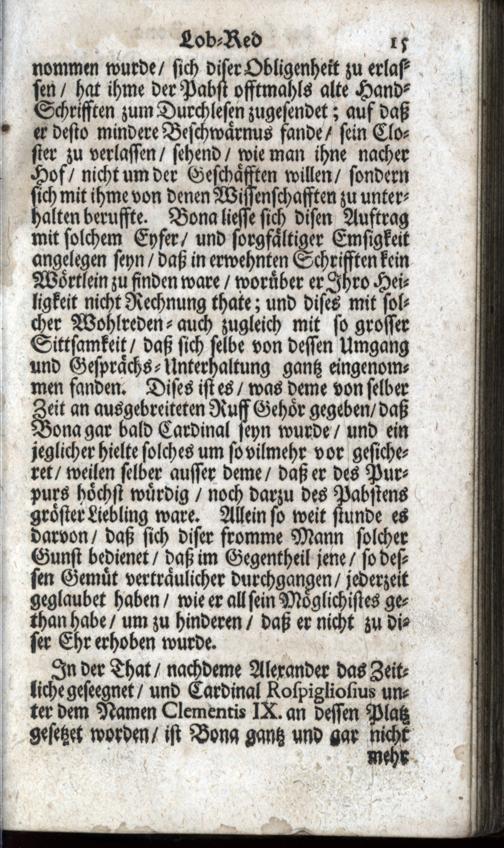 Lob-Red 15
nommen wurde/ sich diser Obligenheit zu erlas-
sen/ hat ihme der Pabst offtmahls alte Hand-
Schrifften zum Durchlesen zugesendet; auf daß
er desto mindere Beschwärnus fande/ sein Clo-
ster zu verlassen/ sehend/ wie man ihne nacher
Hof/ nicht um der Geschäfften willen/ sondern
sich mit ihme von denen Wissenschafften zu unter-
halten beruffte. Bona liesse sich disen Auftrag
mit solchem Eyfer/ und sorgfältiger Emsigkeit
angelegen seyn/ daß in erwehnten Schrifften kein
Wörtlein zu finden ware/ worüber er Ihro Hei-
ligkeit nicht Rechnung thate; und dises mit sol-
cher Wohlreden- auch zugleich mit so grosser
Sittsamkeit/ daß sich selbe von dessen Umgang
und Gesprächs-Unterhaltung gantz eingenom-
men fanden. Dises ist es/ was deme von selber
Zeit an ausgebreiteten Ruff Gehör gegeben/ daß
Bona gar bald Cardinal seyn wurde/ und ein
jeglicher hielte solches um so vilmehr vor gesiche-
ret/ weilen selber ausser deme/ daß er des Pur-
purs höchst würdig/ noch darzu des Pabstens
gröster Liebling ware. Allein so weit stunde es
darvon/ daß sich diser fromme Mann solcher
Gunst bedienet/ daß im Gegentheil jene/ so des-
sen Gemüt verträulicher durchgangen/ jederzeit
geglaubet haben/ wie er all sein Möglichistes ge-
than habe/ um zu hinderen/ daß er nicht zu di-
ser Ehr erhoben wurde.
In der That/ nachdeme Alexander das Zeit-
liche geseegnet/ und Cardinal Rospigliosius un-
ter dem Namen Clementis IX. an dessen Platz
gesetzet worden/ ist Bona gantz und gar nicht
mehr